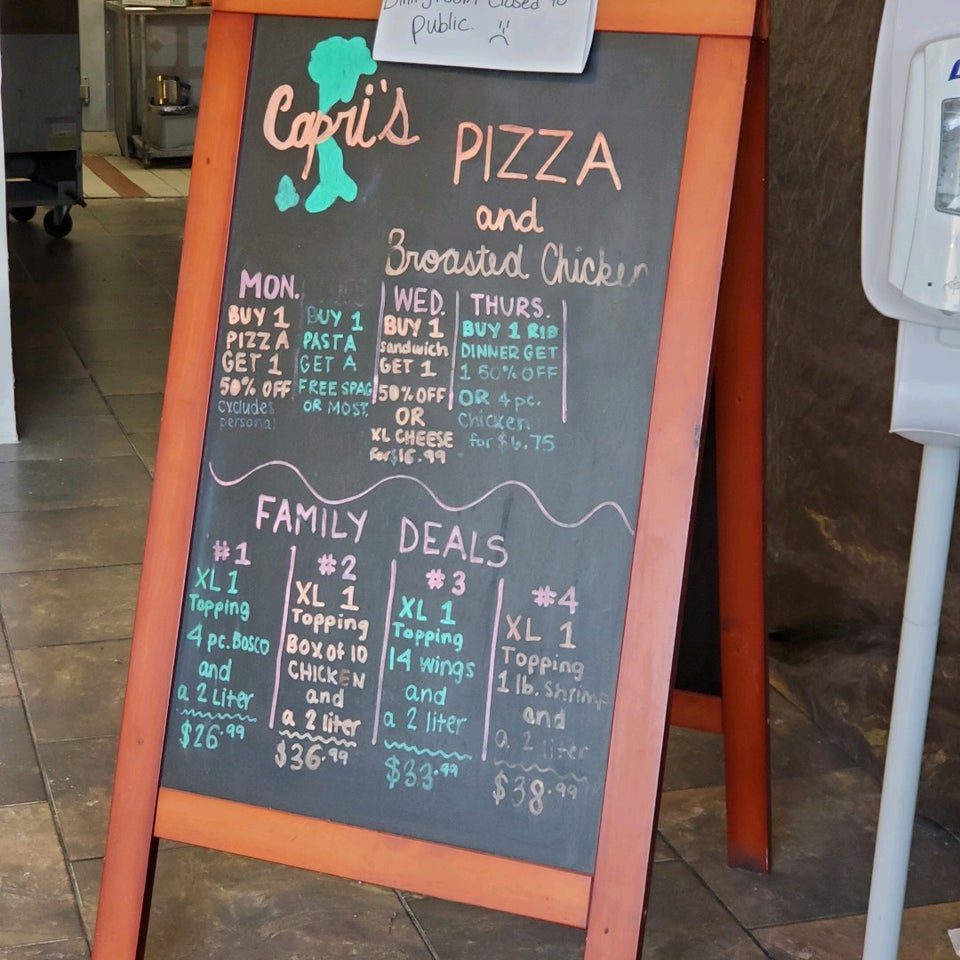 Dining room closed to
public.
Capri's
PIZZA
and
Broasted Chicken
MON.
BUY 1
PIZZA
GET 1
50% OFF
excludes
personal
BUY 1
PASTA
GET A
FREE SPAG
OR MOST.
WED.
BUY 1
sandwich
GET 1
50% OFF
OR
XL CHEESE
for $16.99
THURS.
BUY 1 RIB
DINNER GET
1 50% OFF
OR 4 pc.
Chicken
for $6.75
FAMILY DEALS
#1
XL 1
Topping
4 pc. Bosco
and
a 2 Liter
$26.99
#2
XL 1
Topping
BOX of 10
CHICKEN
and
a 2 liter
$36.99
#3
XL 1
Topping
14 wings
and
a 2 liter
$33.99
#4
XL 1
Topping
1 lb. Shrimp
and
a 2 liter
$38.99